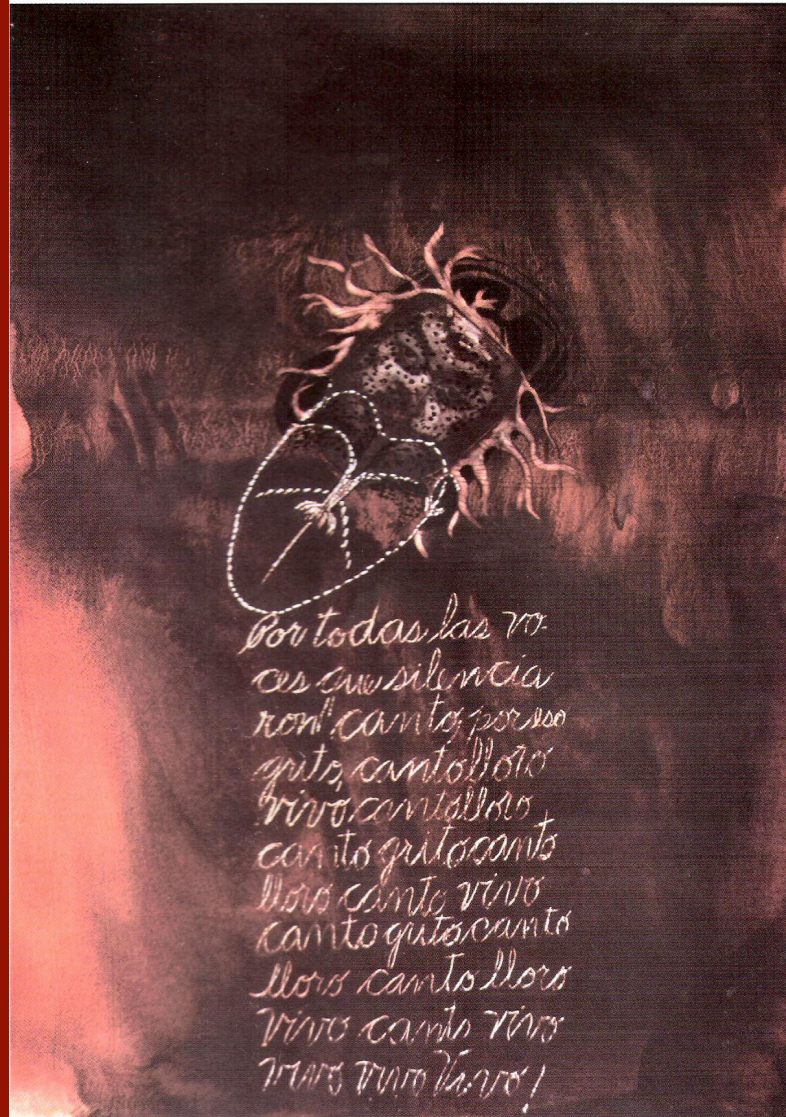 Por todas las vo
ces que silencia
ron! canto, por eso
grito, canto lloro
vivo, canto lloro
canto grito canto
lloro canto vivo
canto grito canto
lloro canto lloro
vivo canto vivo
vivo vivo Vivo!